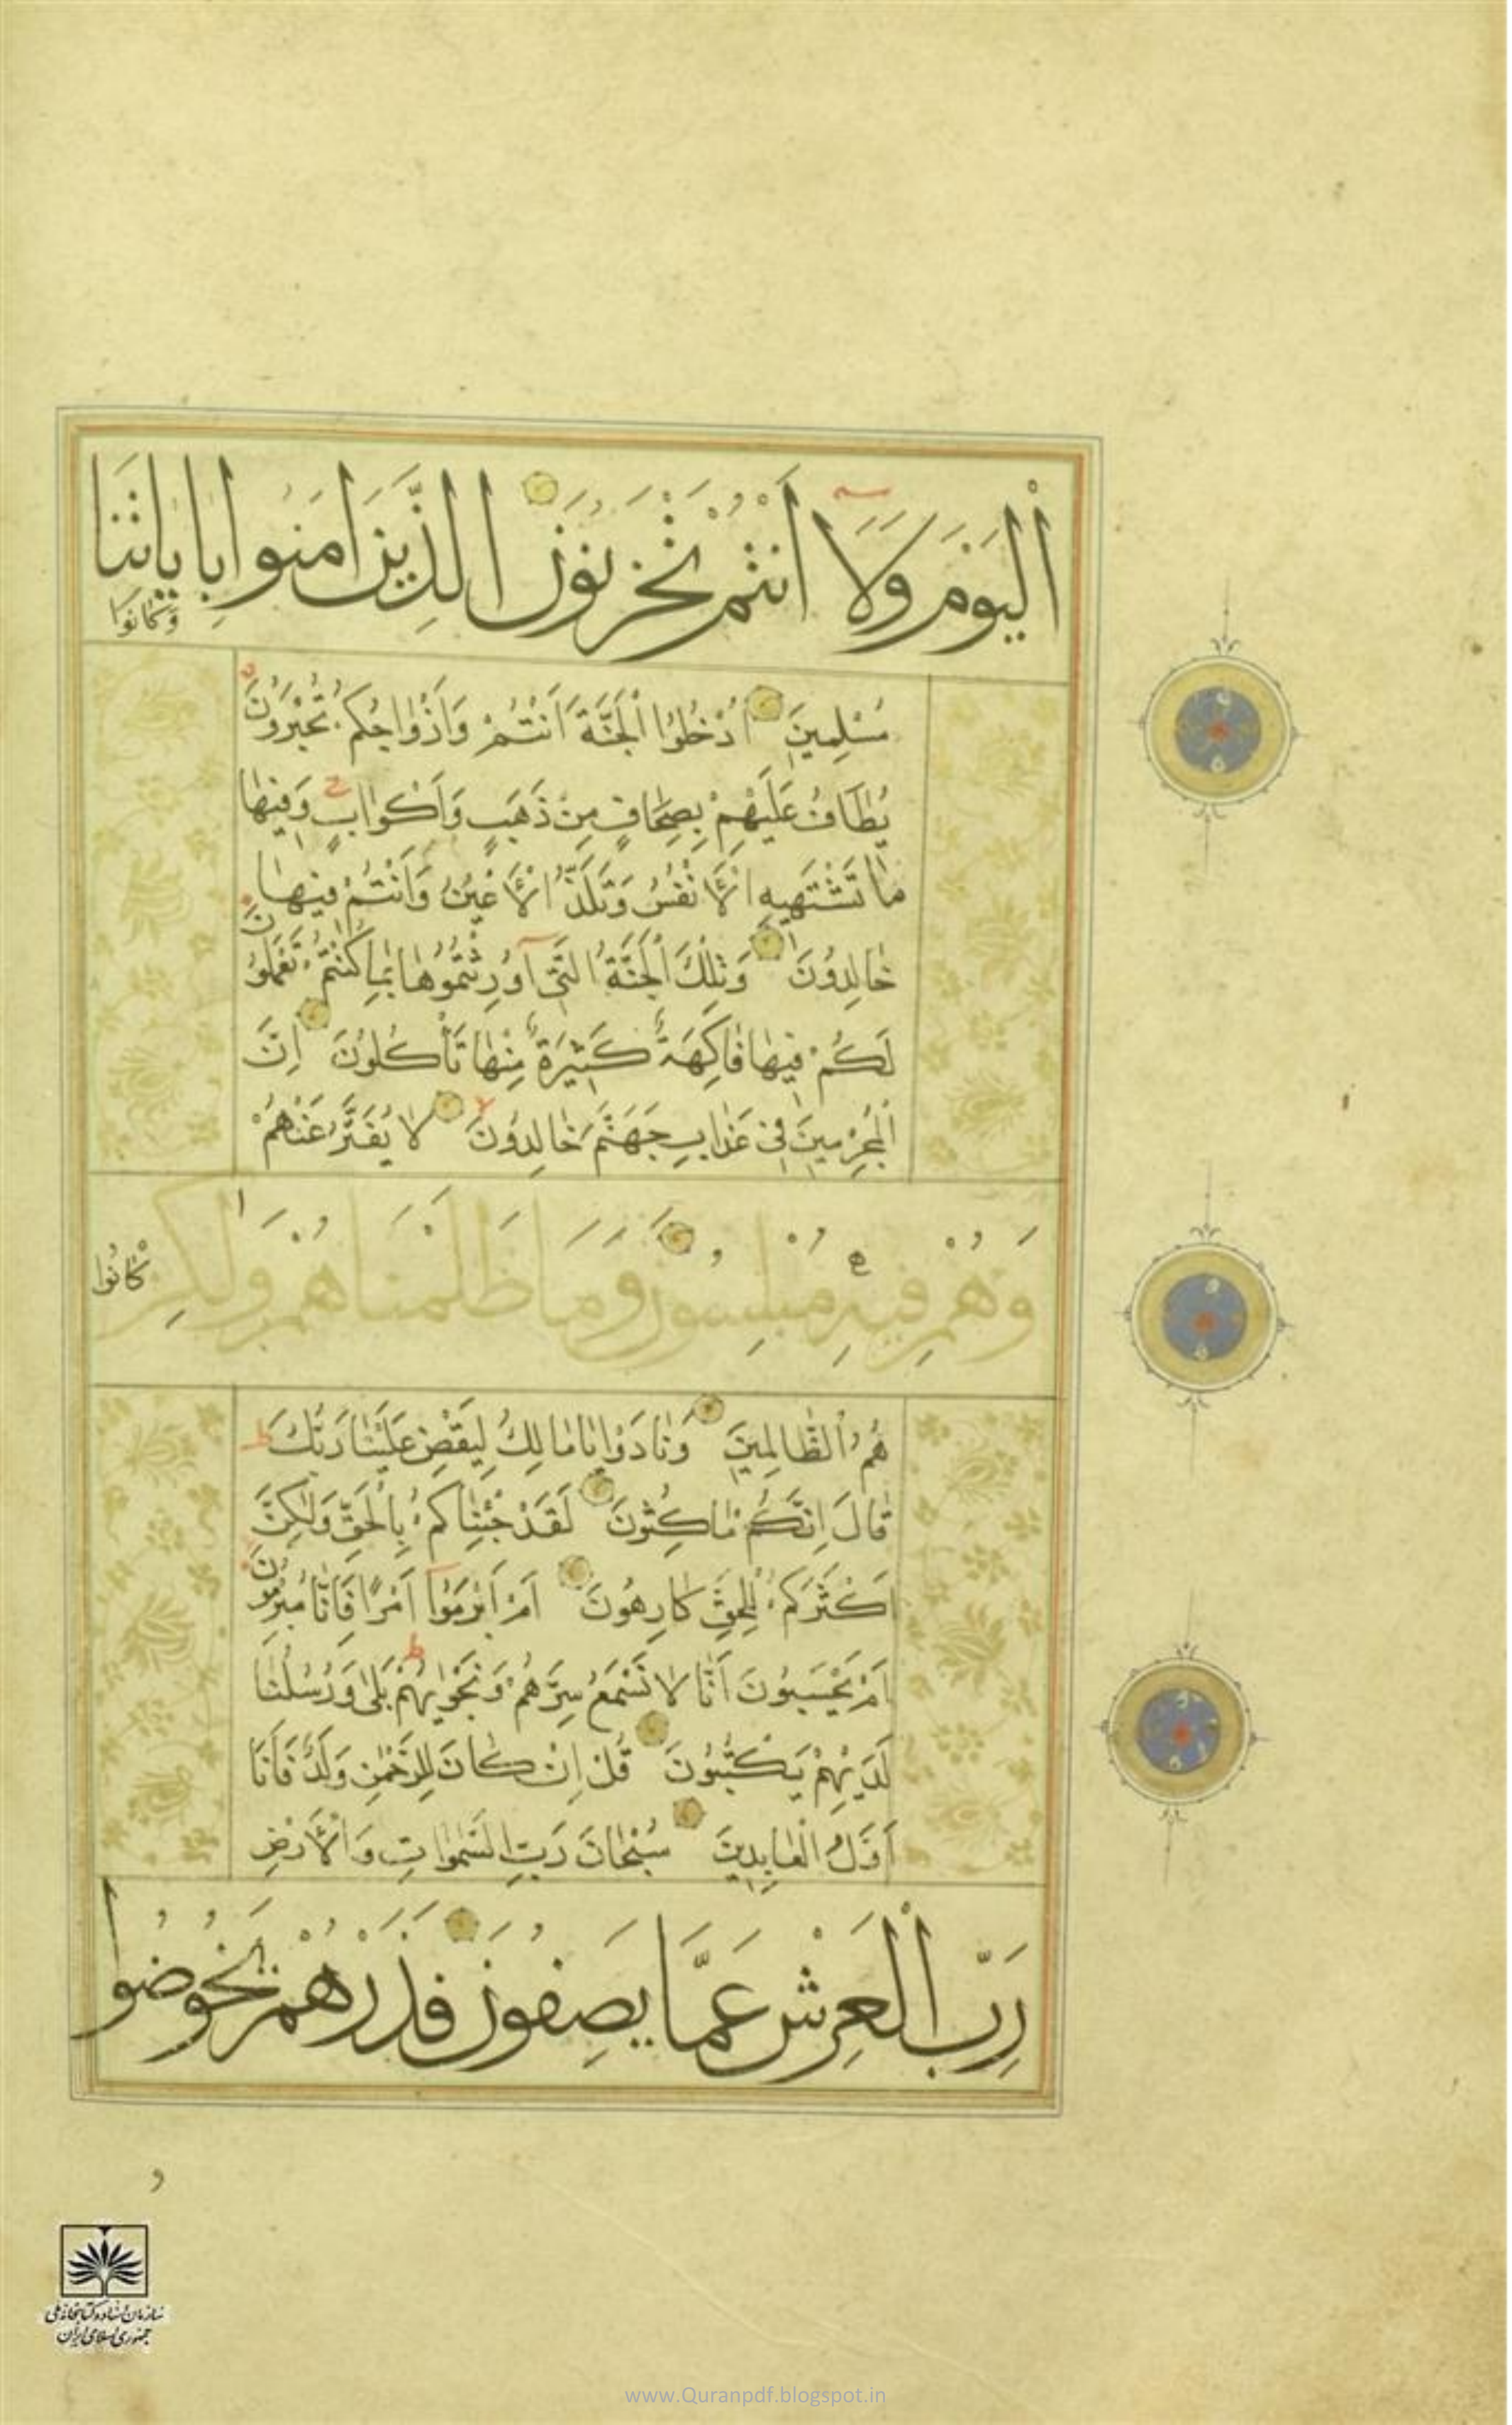 اَلْيَوْمَ وَلَا اَنْتُمْ تَحْزَنُونَ الَّذِينَ اٰمَنُوا بِاٰيَاتِنَا
وَكَانُوا
مُسْلِمِينَ اُدْخُلُوا الْجَنَّةَ اَنْتُمْ وَاَزْوَاجُكُمْ تُحْبَرُونَ
يُطَافُ عَلَيْهِمْ بِصِحَافٍ مِنْ ذَهَبٍ وَاَكْوَابٍ وَفِيهَا
مَا تَشْتَهِيهِ الْاَنْفُسُ وَتَلَذُّ الْاَعْيُنُ وَاَنْتُمْ فِيهَا
خَالِدُونَ وَتِلْكَ الْجَنَّةُ الَّتِي اُورِثْتُمُوهَا بِمَا كُنْتُمْ تَعْمَلُونَ
لَكُمْ فِيهَا فَاكِهَةٌ كَثِيرَةٌ مِنْهَا تَأْكُلُونَ اِنَّ
الْمُجْرِمِينَ فِي عَذَابِ جَهَنَّمَ خَالِدُونَ لَا يُفَتَّرُ عَنْهُمْ
وَهُمْ فِيهِ مُبْلِسُونَ وَمَا ظَلَمْنَاهُمْ وَلٰكِنْ
كَانُوا
هُمُ الظَّالِمِينَ وَنَادَوْا يَا مَالِكُ لِيَقْضِ عَلَيْنَا رَبُّكَ
قَالَ اِنَّكُمْ مَاكِثُونَ لَقَدْ جِئْنَاكُمْ بِالْحَقِّ وَلٰكِنَّ
اَكْثَرَكُمْ لِلْحَقِّ كَارِهُونَ اَمْ اَبْرَمُوا اَمْرًا فَاِنَّا مُبْرِمُونَ
اَمْ يَحْسَبُونَ اَنَّا لَا نَسْمَعُ سِرَّهُمْ وَنَجْوٰيهُمْ بَلٰى وَرُسُلُنَا
لَدَيْهِمْ يَكْتُبُونَ قُلْ اِنْ كَانَ لِلرَّحْمٰنِ وَلَدٌ فَاَنَا
اَوَّلُ الْعَابِدِينَ سُبْحَانَ رَبِّ السَّمٰوَاتِ وَالْاَرْضِ
رَبِّ الْعَرْشِ عَمَّا يَصِفُونَ فَذَرْهُمْ يَخُوضُوا
و
سازمان اسناد و کتابخانه ملی
جمهوری اسلامی ایران
www.Quranpdf.blogspot.in